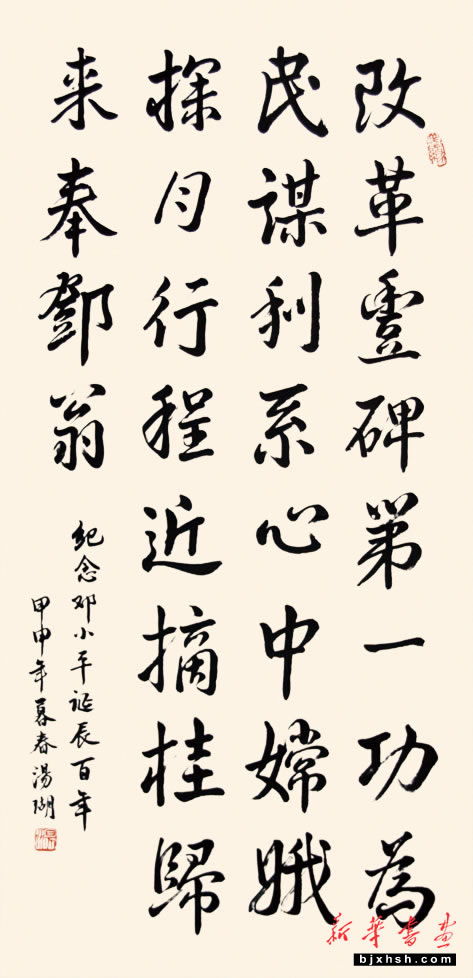 改革豐碑第一功為
民謀利系心中嫦娥
探月行程近摘桂歸
来奉鄧翁
紀念邓小平誕辰百年
甲申年暮春湯瑚
新华書画
bjxhsh.com